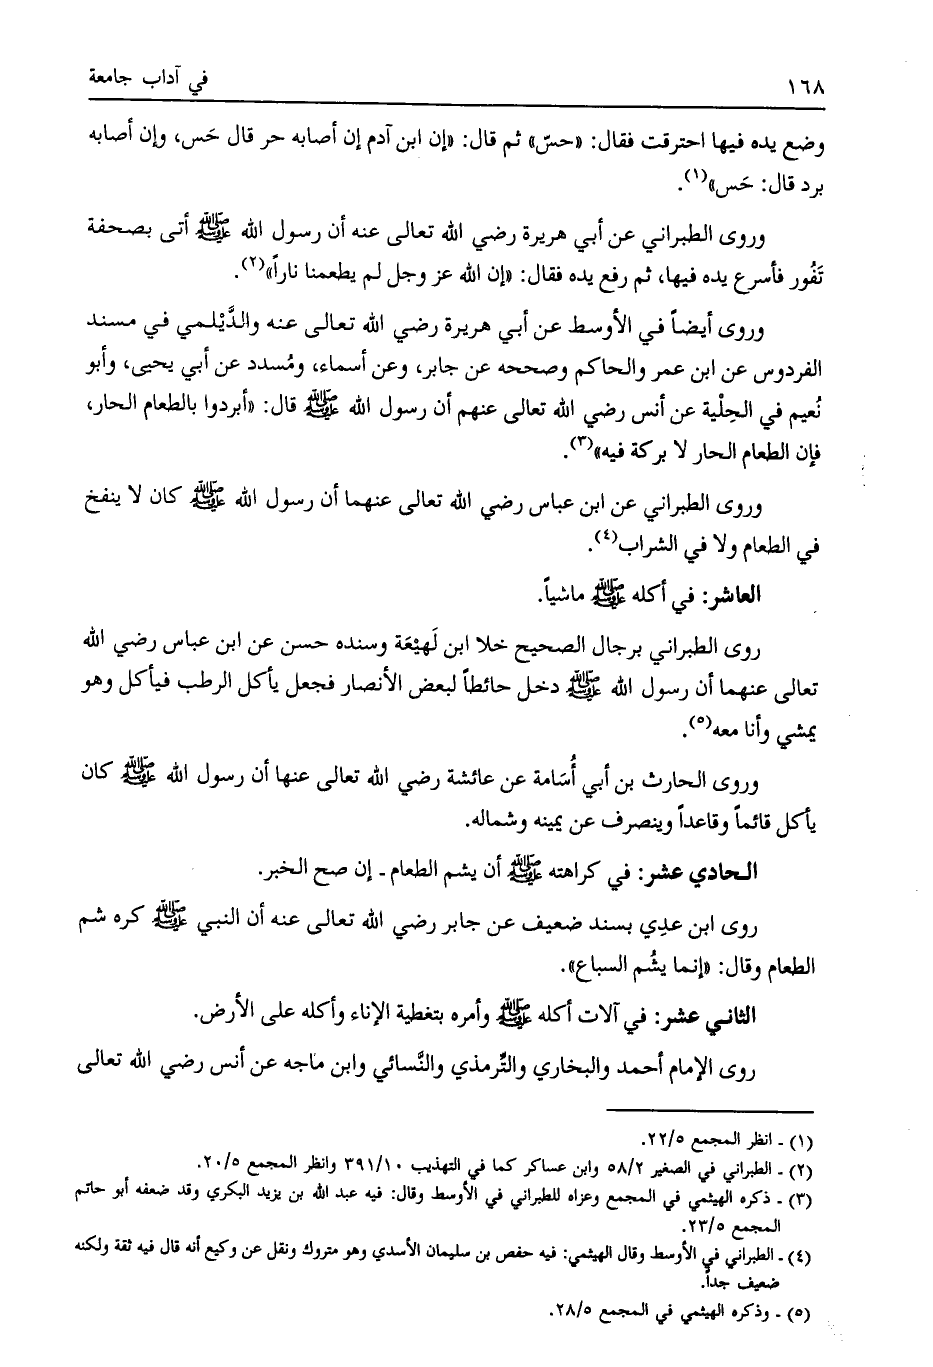 ١٦٨
في آداب جامعة
وضع يده فيها احترقت فقال: «حسّ» ثم قال: «إن ابن آدم إن أصابه حر قال حَس، وإن أصابه
برد قال: حَس»(١).
وروى الطبراني عن أبي هريرة رضي الله تعالى عنه أن رسول الله ﷺ أتى بصحفة
تَفُور فأسرع يده فيها، ثم رفع يده فقال: «إن الله عز وجل لم يطعمنا ناراً»(٢).
وروى أيضاً في الأوسط عن أبي هريرة رضي الله تعالى عنه والدَّيْلمي في مسند
الفردوس عن ابن عمر والحاكم وصححه عن جابر، وعن أسماء، ومُسدد عن أبي يحيى، وأبو
نُعيم في الحِلْية عن أنس رضي الله تعالى عنهم أن رسول الله ﷺ قال: «أبردوا بالطعام الحار،
فإن الطعام الحار لا بركة فيه»(٣).
وروى الطبراني عن ابن عباس رضي الله تعالى عنهما أن رسول الله ﷺ كان لا ينفخ
في الطعام ولا في الشراب(٤).
العاشر: في أكله ﷺ ماشياً.
روى الطبراني برجال الصحيح خلا ابن لَهيْعَة وسنده حسن عن ابن عباس رضي الله
تعالى عنهما أن رسول الله ﷺ دخل حائطاً لبعض الأنصار فجعل يأكل الرطب فيأكل وهو
يمشي وأنا معه(٥).
وروى الحارث بن أبي أُسَامة عن عائشة رضي الله تعالى عنها أن رسول الله ﷺ كان
يأكل قائماً وقاعداً وينصرف عن يمينه وشماله.
الحادي عشر: في كراهته ﷺ أن يشم الطعام ـ إن صح الخبر.
روى ابن عدِي بسند ضعيف عن جابر رضي الله تعالى عنه أن النبي ﷺ كره شم
الطعام وقال: «إنما يشُم السباع».
الثاني عشر: في آلات أكله ﷺ وأمره بتغطية الإناء وأكله على الأرض.
روى الإمام أحمد والبخاري والتِّرمذي والنَّسائي وابن ماجه عن أنس رضي الله تعالى
(١) ـ انظر المجمع ٢٢/٥.
(٢) ـ الطبراني في الصغير ٥٨/٢ وابن عساكر كما في التهذيب ٣٩١/١٠ وانظر المجمع ٢٠/٥.
(٣) ـ ذكره الهيثمي في المجمع وعزاه للطبراني في الأوسط وقال: فيه عبد الله بن يزيد البكري وقد ضعفه أبو حاتم
المجمع ٢٣/٥.
(٤) ـ الطبراني في الأوسط وقال الهيثمي: فيه حفص بن سليمان الأسدي وهو متروك ونقل عن وكيع أنه قال فيه ثقة ولكنه
ضعيف جداً.
(٥) ـ وذكره الهيثمي في المجمع ٢٨/٥.